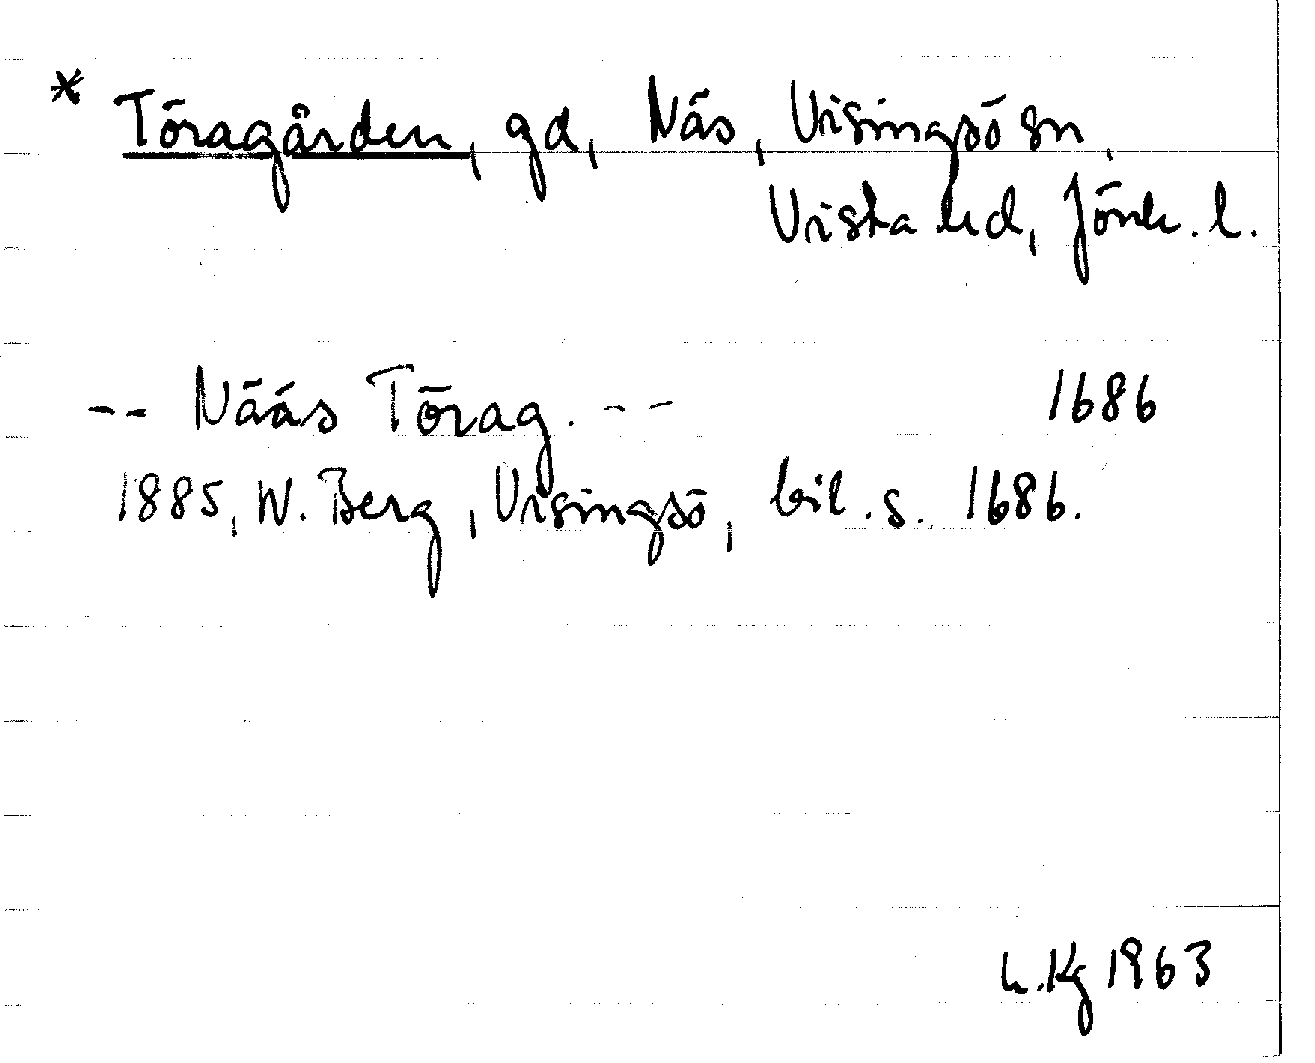 * Töragården, gd, Näs, Visingsö sn,
Vista hd, Jönk. l.
-- Nääs Törag. -- 1686
1885, W. Berg, Visingsö, bil. s. 1686.
1963